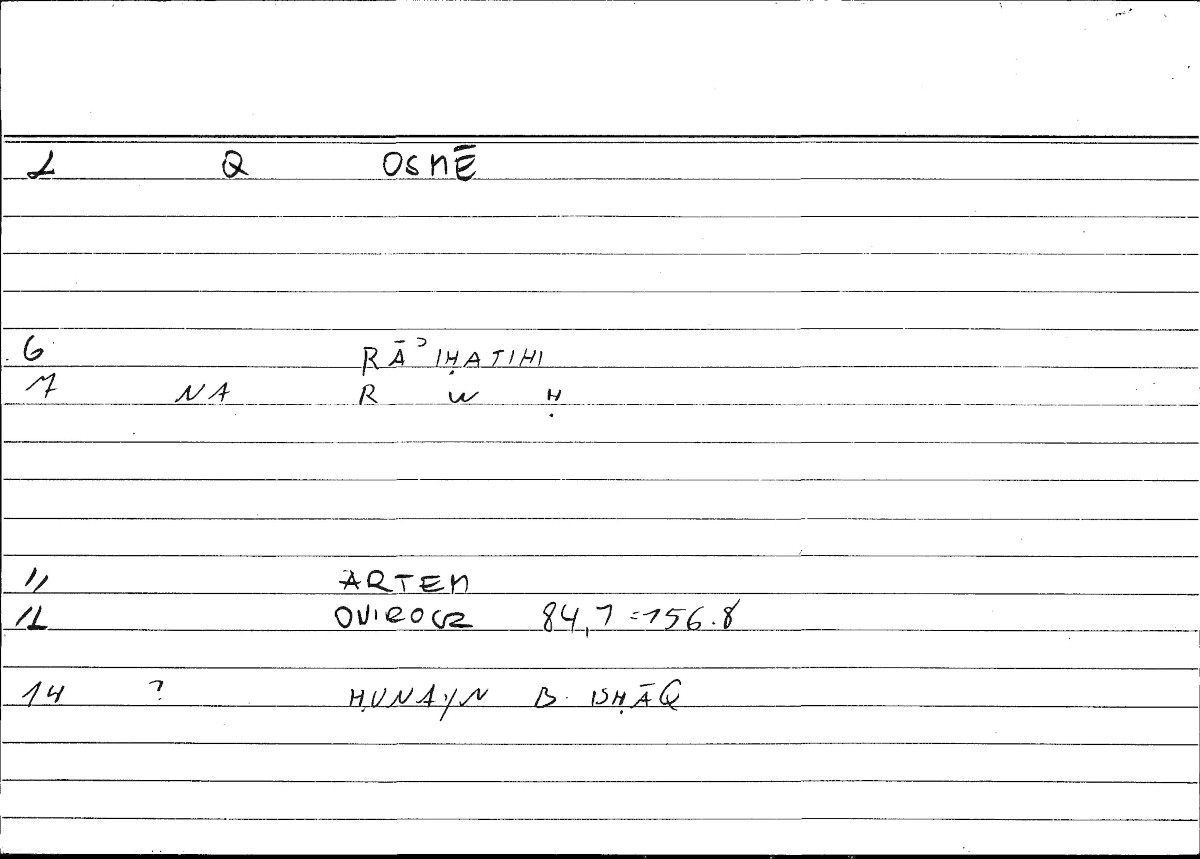 2 Q OSMĒ
6 RĀʾIḤATIHI
7 NA R W Ḥ
11 ARTEM
12 ONIROCR 84,7 = 156.8
14 ? ḤUNAYN B. ISḤĀQ